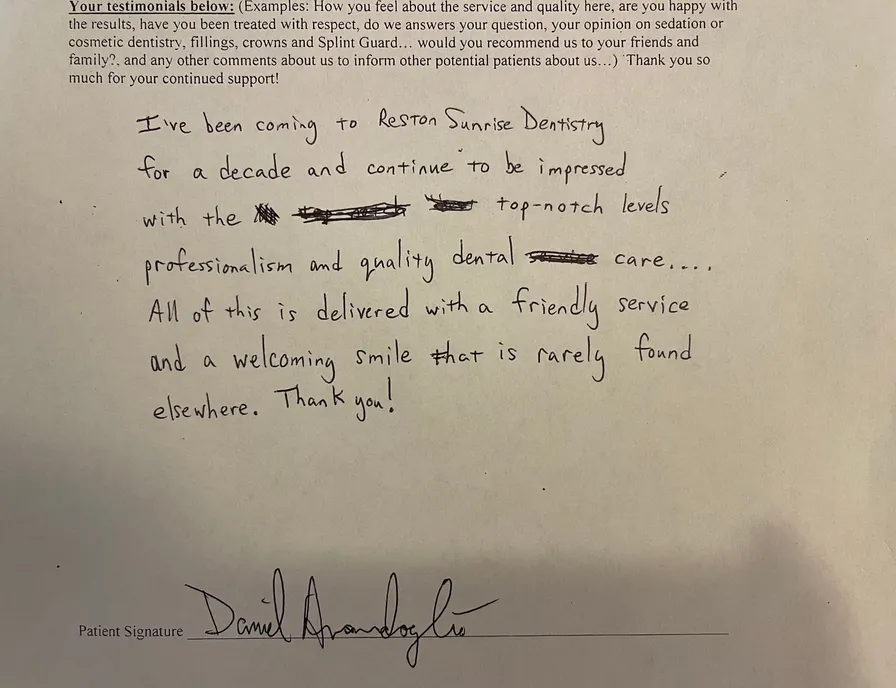 Your testimonials below: (Examples: How you feel about the service and quality here, are you happy with
the results, have you been treated with respect, do we answers your question, your opinion on sedation or
cosmetic dentistry, fillings, crowns and Splint Guard... would you recommend us to your friends and
family?, and any other comments about us to inform other potential patients about us...) Thank you so
much for your continued support!
I've been coming to Reston Sunrise Dentistry
for a decade and continue to be impressed
with the top-notch levels
professionalism and quality dental care....
All of this is delivered with a friendly service
and a welcoming smile that is rarely found
elsewhere. Thank you!
Patient Signature Daniel